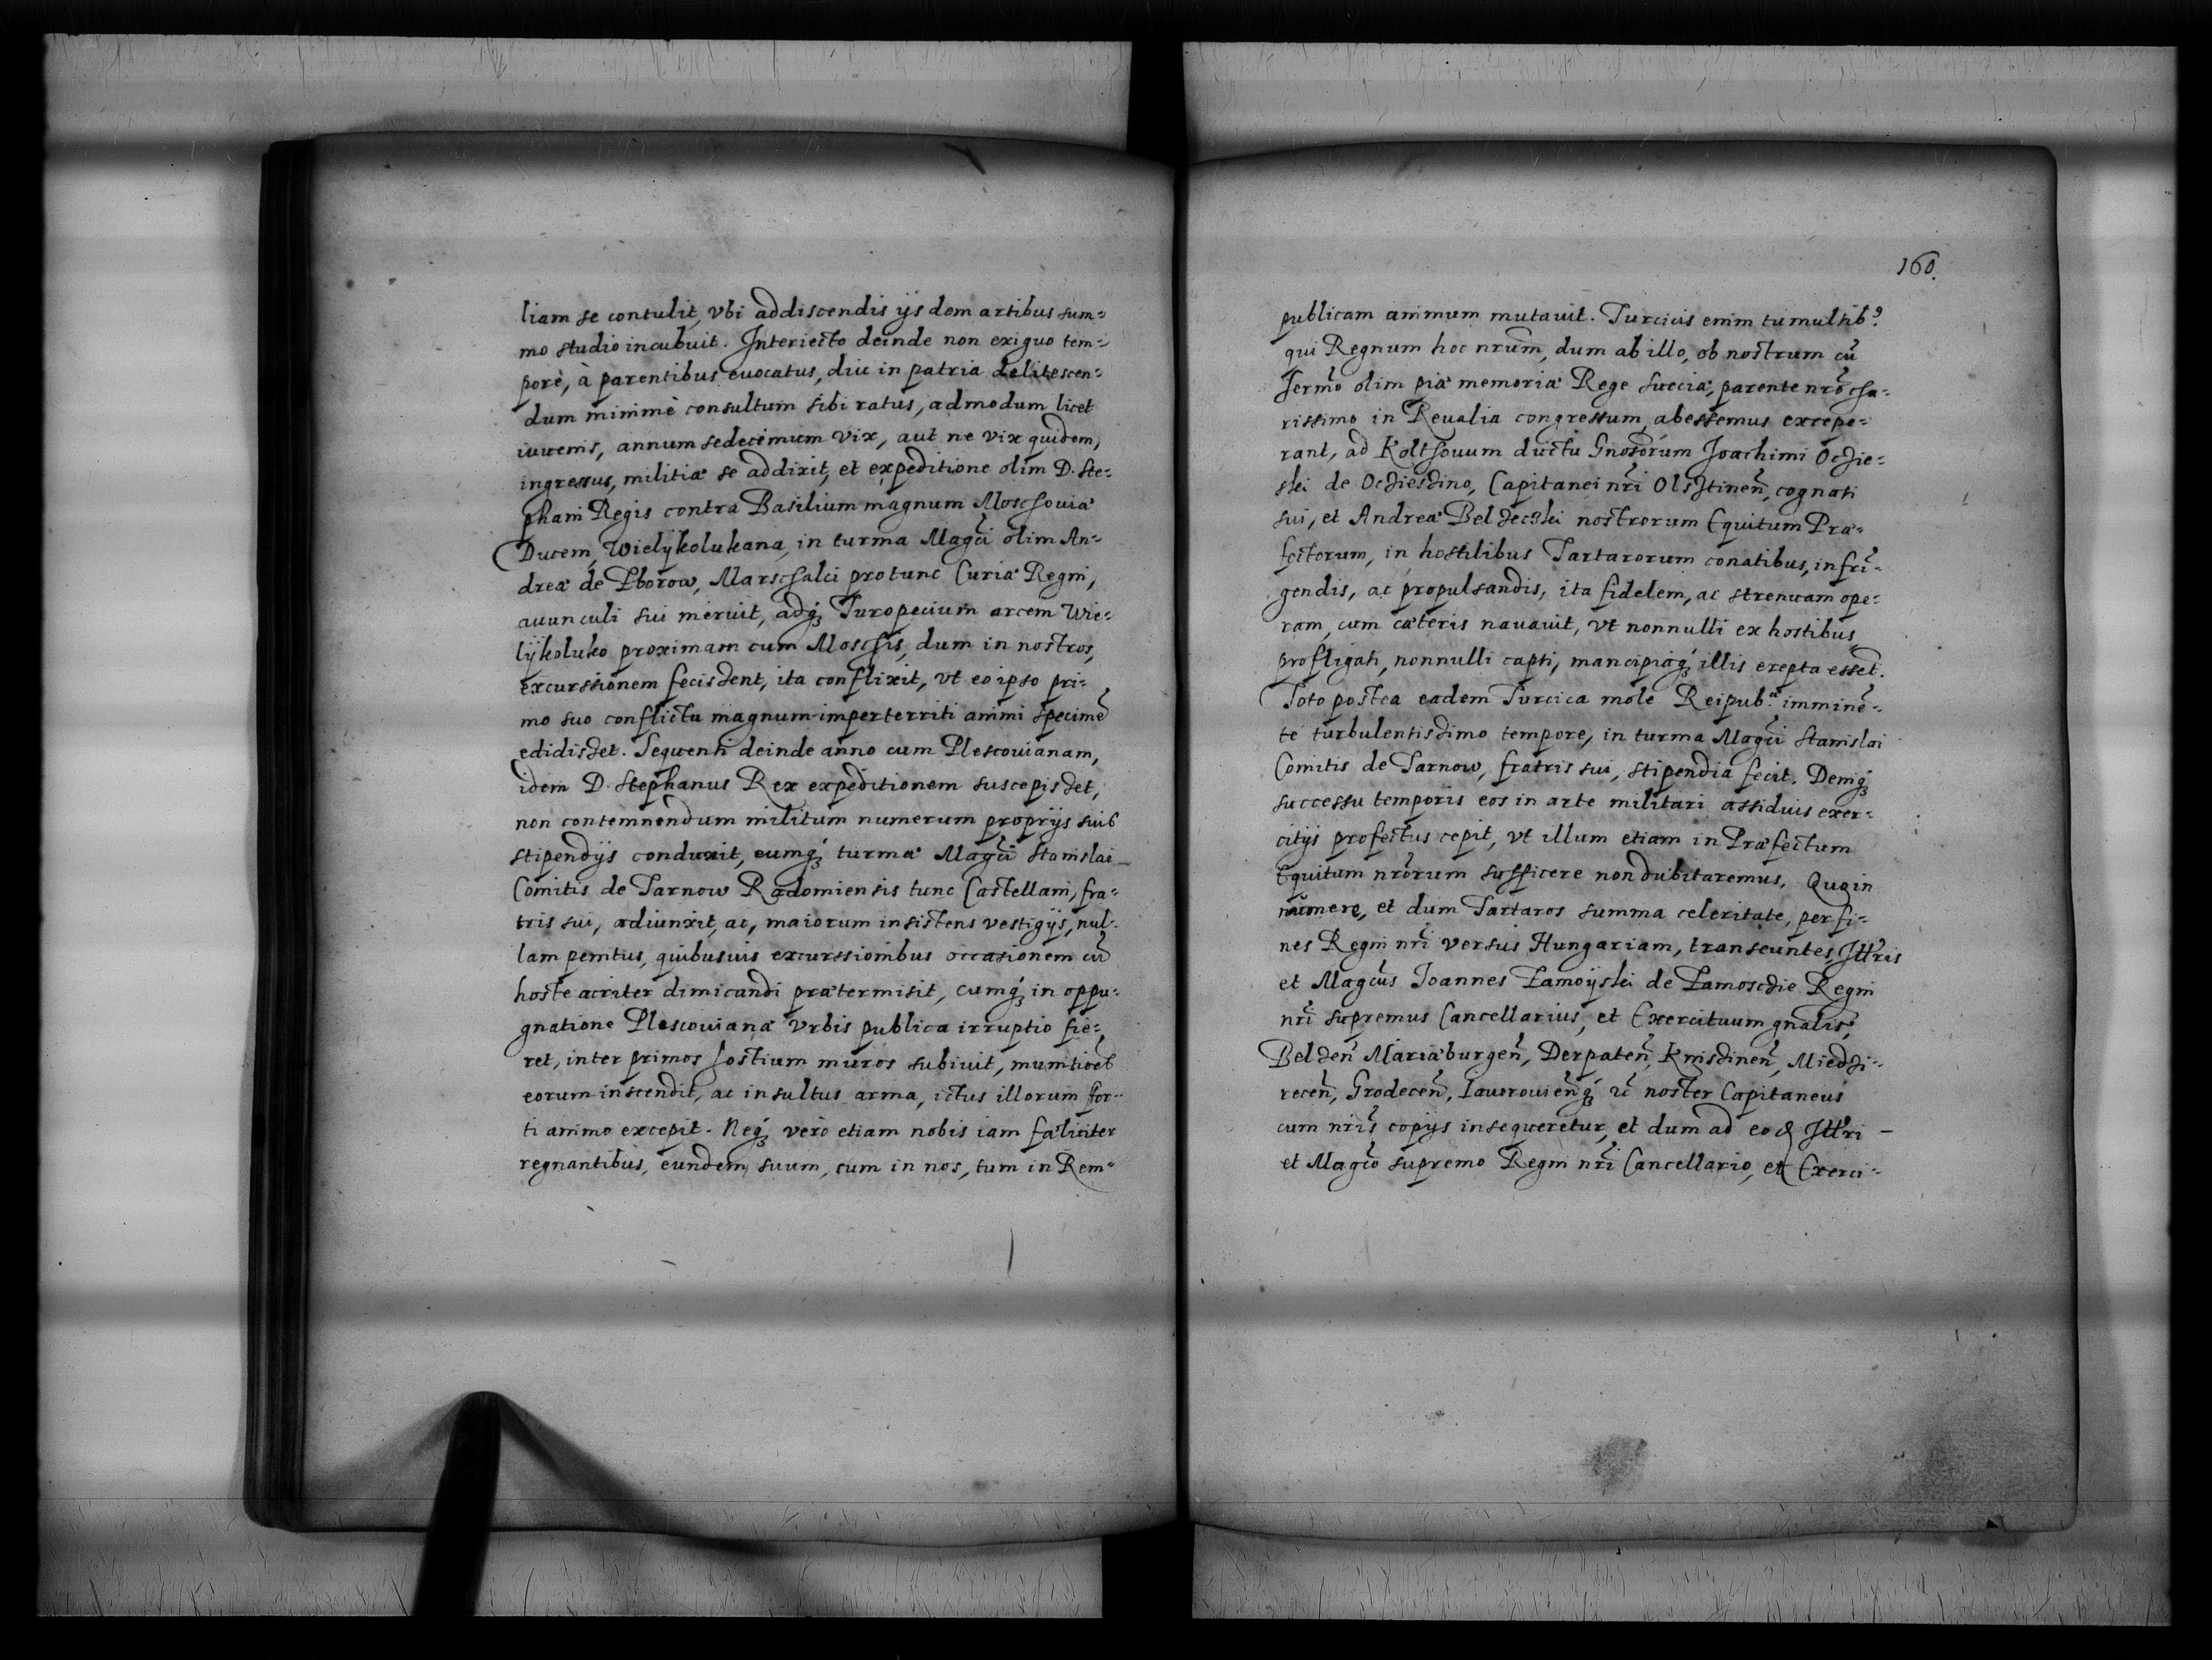 liam se contulit, vbi addiscendis ijsdem artibus sum=
mo studio incubuit. Interiecto deinde non exiguo tem=
pore, à parentibus euocatus, diu in patria delitescen=
dum minimè consultum sibi ratus, admodum licet
iuuenis, annum sedecimum vix, aut ne vix quidem,
ingressus, militiæ se addixit, et expeditione olim D. Ste=
phani Regis contra Basilium magnum Moschouiæ
Ducem, Wielÿkolukana, in turma Magci olim An=
dreæ de Zborow, Marschalci protunc Curiæ Regni,
auunculi sui meruit, adq3 Turopecium arcem Wie=
lÿkoluko proximam cum Moschis, dum in nostros,
excurssionem fecissent, ita conflixit, vt eo ipso pri=
mo suo conflictu magnum imperterriti animi specimē
edidisset. Sequenti deinde anno cum Plescouianam,
idem D. Stephanus Rex expeditionem suscepisset,
non contemnendum militum numerum proprijs suis
stipendijs conduxit, eumq3 turmæ Magci Stanislai
Comitis de Tarnow Radomiensis tunc Castellani, fra=
tris sui, adiunxit, ac, maiorum insistens vestigijs, nul=
lam penitus, quibusuis excurssionibus occasionem cū
hoste acriter dimicandi prætermisit, cumq3 in oppu=
gnatione Plescouianæ vrbis publica irruptio fie=
ret, inter primos hostium muros subiuit, munitiōes
eorum inscendit, ac insultus arma, ictus illorum for=
ti animo excepit. Neq3 verò etiam nobis iam fæliciter
regnantibus, eundem suum, cum in nos, tum in Rem=
160.
publicam animum mutauit. Turcicis enim tumultib9.
qui Regnum hoc nrum, dum ab illo, ob nostrum cū
Sermo olim piæ memoriæ Rege Sueciæ, parente nro cha=
rissimo in Reualia congressum, abessemus excepe=
rant, ad Kolthouum ductu Gnosorum Joachimi Oczie=
ski de Ocziesdino, Capitanei nri Olsztinen, cognati
sui, et Andreæ Belzecski nostrorum Equitum Præ=
fectorum, in hostilibus Tartarorum conatibus, infrī=
gendis, ac propulsandis, ita fidelem, ac strenuam ope=
ram, cum cæteris nauauit, vt nonnulli ex hostibus
profligati, nonnulli capti, mancipiaq3 illis erepta essēt.
Toto postea eadem Turcica mole Reipub.æ imminē=
te turbulentissimo tempore, in turma Magci Stanislai
Comitis de Tarnow, fratris sui, stipendia fecit. Deniq3
successu temporis eos in arte militari assiduis exer=
citijs profectus cepit, vt illum etiam in Præfectum
Equitum nrorum sufficere non dubitaremus, Quo in
munere, et dum Tartaros summa celeritate, per fi=
nes Regni nri versus Hungariam, transeuntes, Illris
et Magcus Joannes Zamoÿski de Zamosczie Regni
nri supremus Cancellarius, et Exercituum gnalis,
Belzen Mariæburgen, Derpaten, Knisdinen, Miedzi=
recen, Grodecen, Iauorouienq3 noster Capitaneus
cum nris copijs insequeretur, et dum ad Illri
et Magco supremo Regni nri Cancellario, et Exerci=